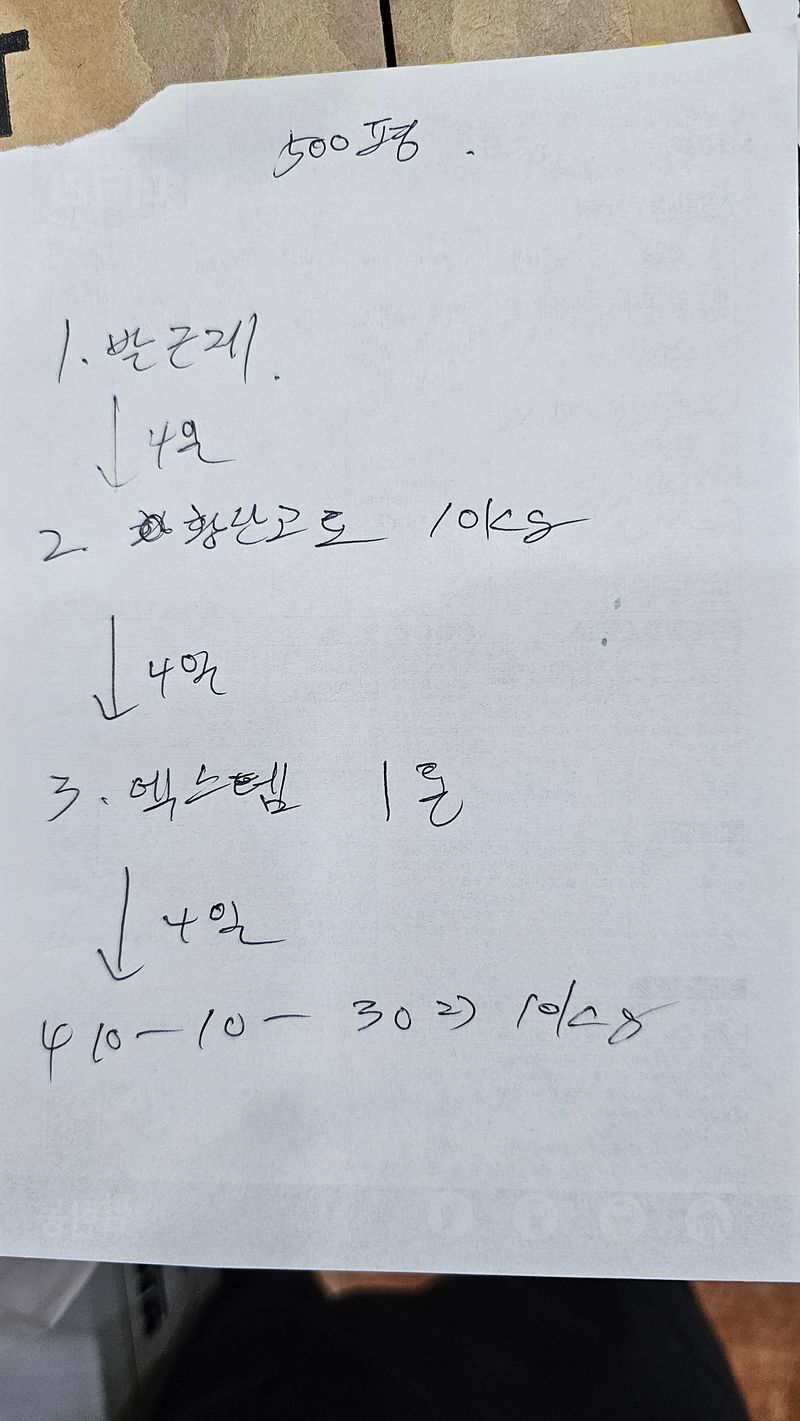 500평.
1. 발근제.
↓ 4일
2. 황산고토 10kg
↓ 4일
3. 엑스템 1톤
↓ 4일
4 10-10-30 10kg